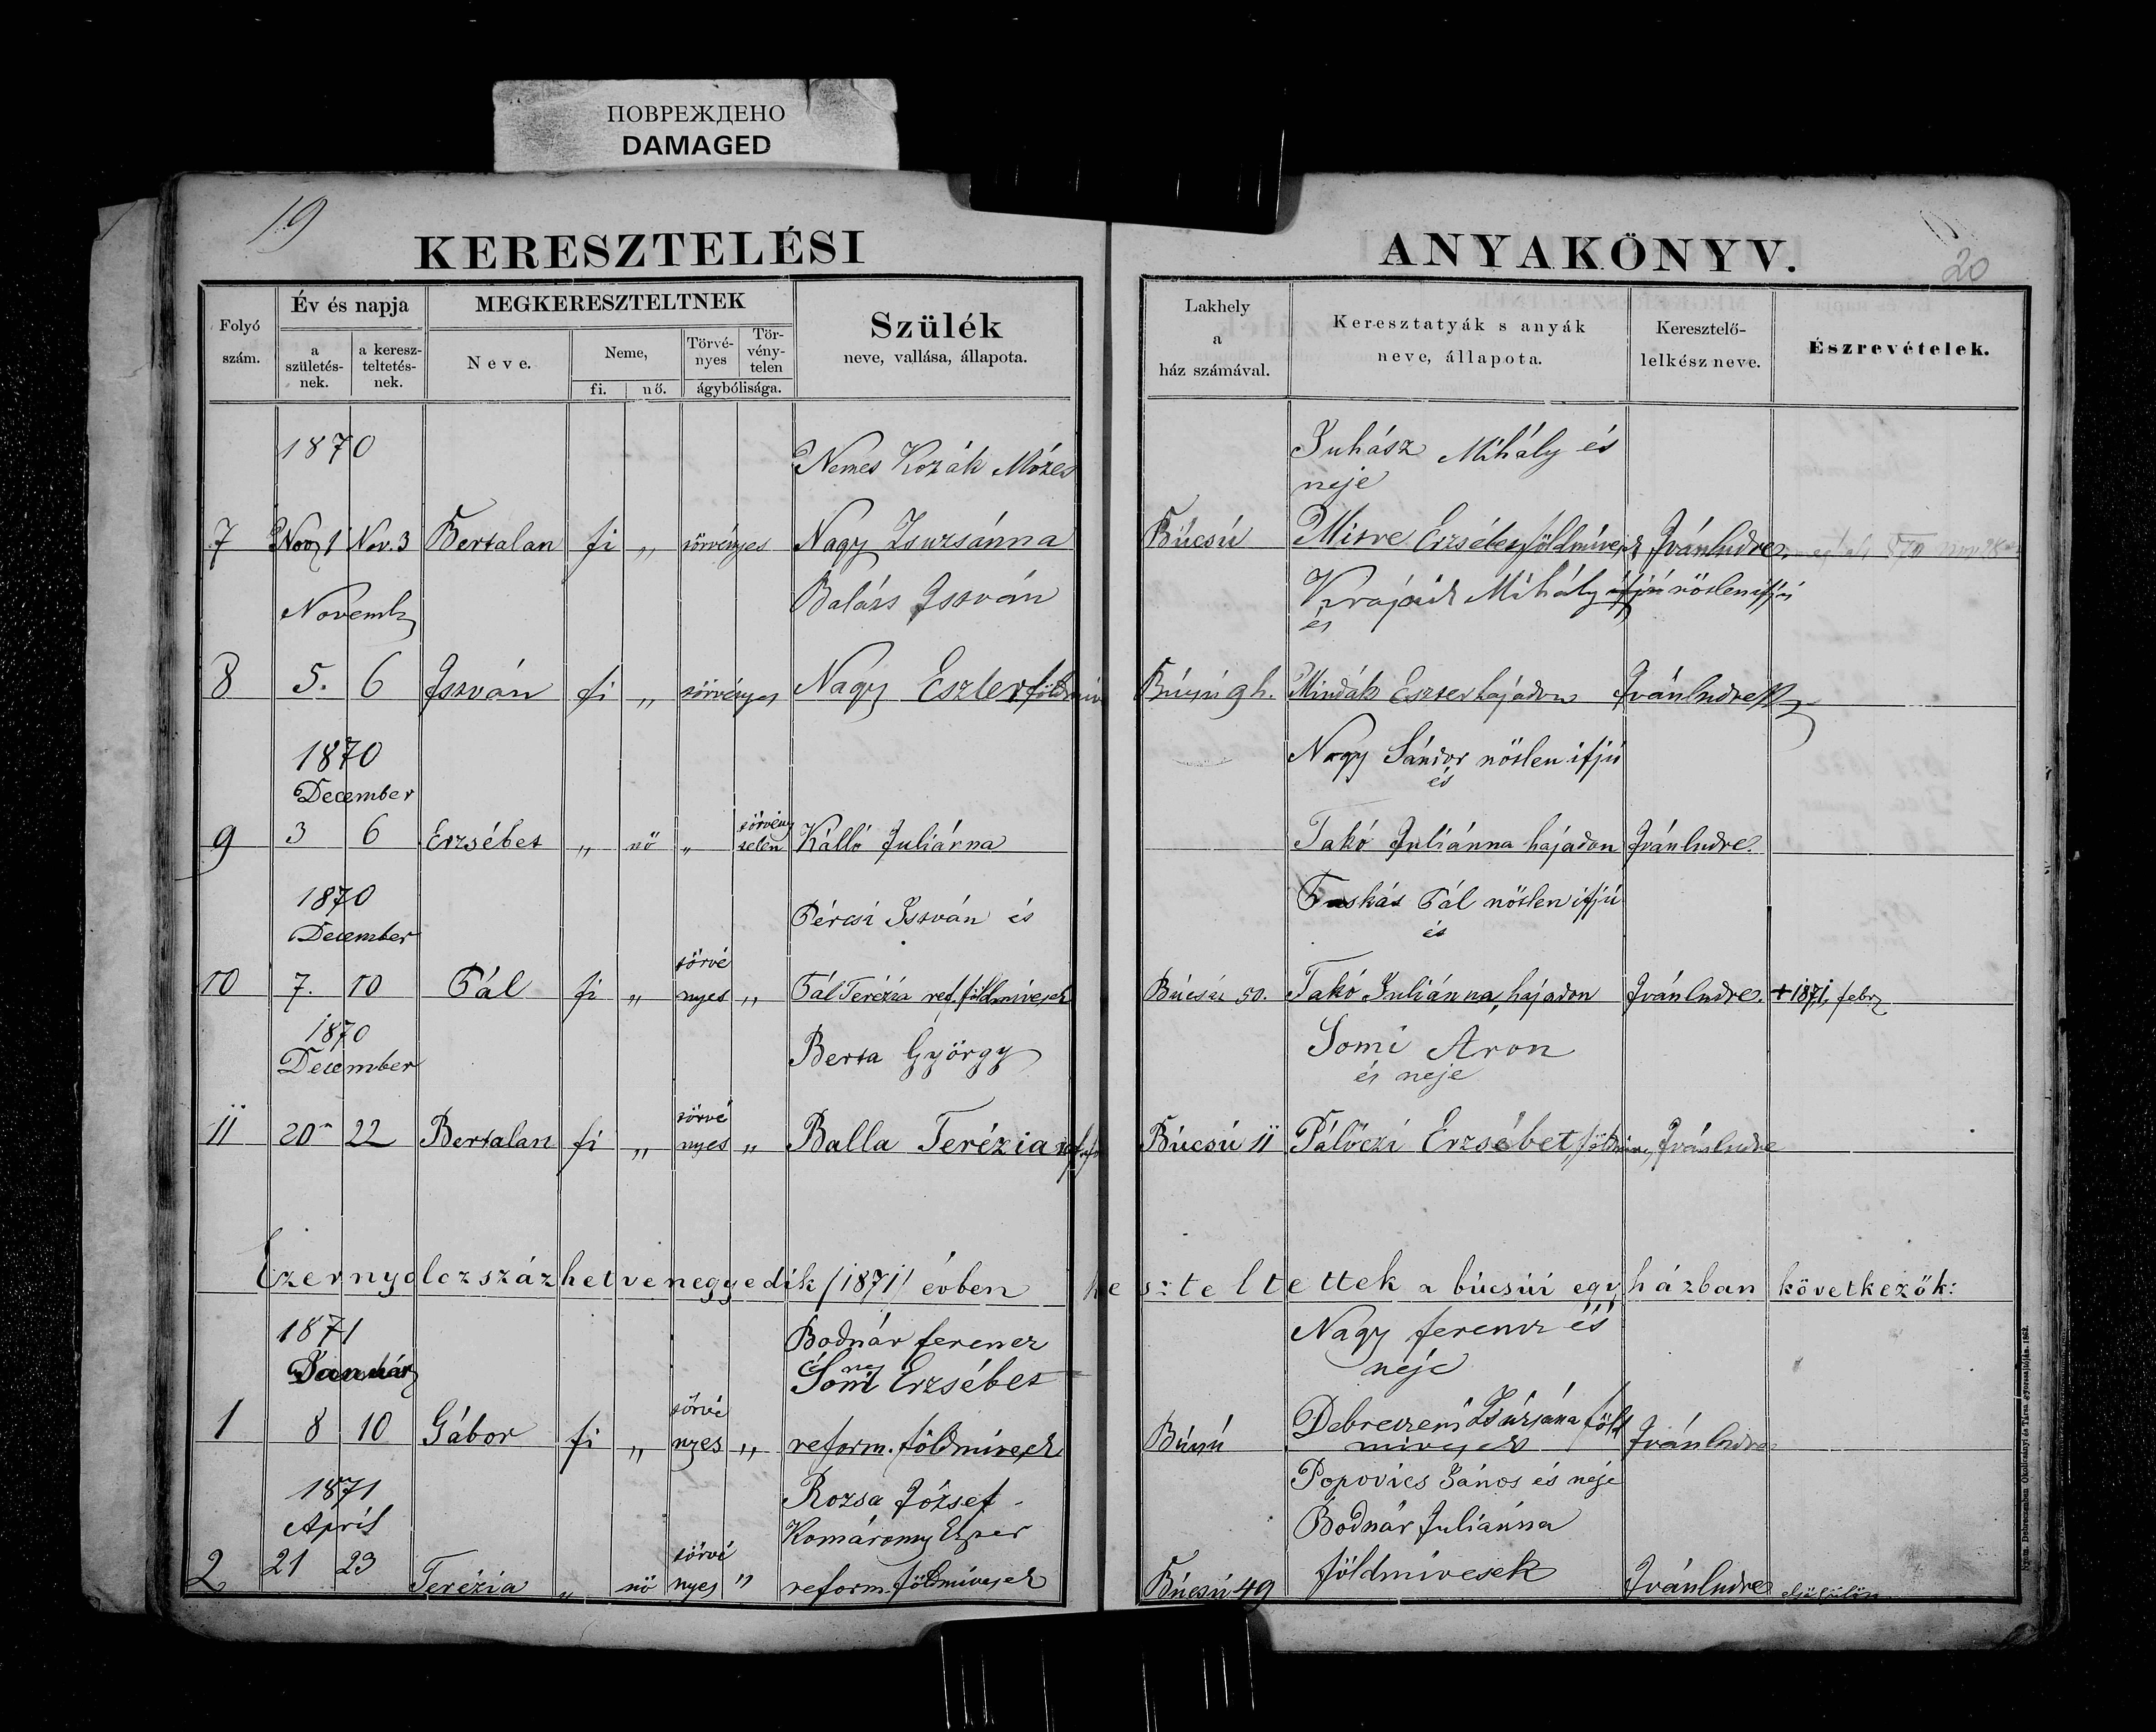 ПОВРЕЖДЕНО
DAMAGED
19
KERESZTELÉSI ANYAKÖNYV.
20
Folyó szám.
Év és napja
a születés-nek.
a keresz-teltetés-nek.
MEGKERESZTELTNEK
Neve.
Neme,
fi. nő.
Törvé-nyes
Tör-vény-telen
ágybólisága.
Szülék
neve, vallása, állapota.
Lakhely
a
ház számával.
Keresztatyák s anyák
neve, állapota.
Keresztelő-
lelkész neve.
Észrevételek.
1870 Nemes Kozák Mózes Juhász Mihály és
neje
7 Nov 1 Nov. 3 Bertalan fi „ törvényes Nagy Zsuzsánna Búcsú Mitre Erzsébet földmivesek Iván Endre
Novemb Balázs István Mihály nőtlen ifjú
és
8 5. 6 István fi „ törvényes Nagy Eszter földmiv Búcsú 9 h. Mindák Eszter hajadon Iván Endre
1870 Nagy Sándor nőtlen ifjú
December és
9 3 6 Erzsébet „ nő „ törvény telen Kálló Juliánna Takó Juliánna hajadon Iván Endre.
1870 Pércsi István és Fuskás Pál nőtlen ifjú
December és
10 7. 10 Pál fi „ törvé nyes „ Pál Terézia ref. földmivesek Búcsú 50. Takó Juliánna, hajadon Iván Endre. + 1871, febr
1870 Berta György Somi Aron
December és neje
11 20 22 Bertalan fi „ törvé nyes „ Balla Terézia Búcsú 11 Pálóczi Erzsébet, földmiv Iván Endre
Ezernyolczszázhetvenegyedik /1871/ évben keszteltettek a búcsúi egyházban következők:
1871 Bodnár ferencz Nagy ferencz és
Január és nej Somi Erzsébet neje
1 8 10 Gábor fi „ törvé nyes „ reform. földmivesek Búcsú Debreczeni Zsuzsána föld
mivesek Iván Endre
1871 Rozsa József Popovics János és neje
April Komáromy Eszter Bodnár Juliánna
2 21 23 Terézia „ nő törvé nyes " reform. földmivesek Búcsú 49 földmivesek Iván Endre
Nyom. Debreczenben Okolicsányi és Társa gyorssajtóján. 1862.